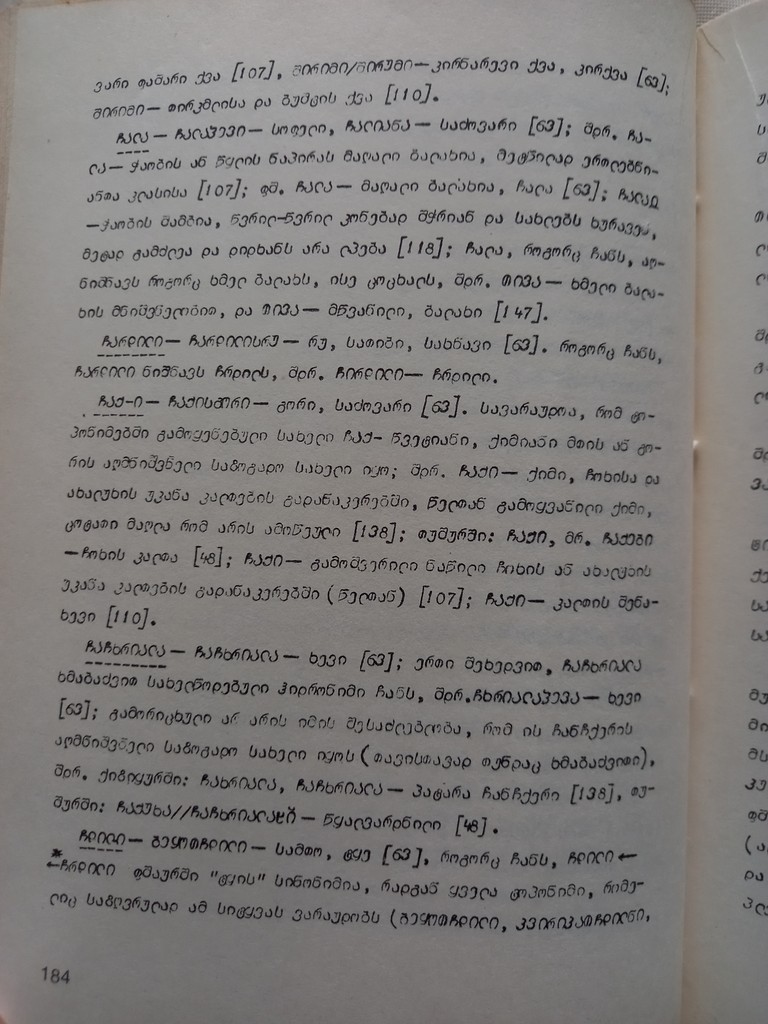 ვარი ფაშარი ქვა [107], შირიმი/შირუმი—კირნარევი ქვა, კირქვა [63];
შირიმი— თირკმლისა და ბუშტის ქვა [110].
ჩალა— ჩალაშევი— სოფელი, ჩალიანა— საძოვარი [63]; შდრ. ჩა-
ლა— ჭაობის ან წყლის ნაპირას მაღალი ბალახია, მეტწილად ერთლებნი-
ანთა კლასისა [107]; ფშ. ჩალა— მაღალი ბალახია, ჩალა [63]; ჩალაჲ
—ჭაობის შამბია, წვრილ-წვრილ კონებად შჭრიან და სახლებს ხურავენ,
მეტად გამძლეა და დიდხანს არა ლპება [118]; ჩალა, როგორც ჩანს, აღ-
ნიშნავს როგორც ხმელ ბალახს, ისე ცოცხალს, შდრ. თივა— ხმელი ბალა-
ხის მნიშვნელობით, და თივა— მწვანილი, ბალახი [147].
ჩარდილი— ჩარდილისრუ— რუ, სათიბი, სახნავი [63]. როგორც ჩანს,
ჩარდილი ნიშნავს ჩრდილს, შდრ. ჩირდილი— ჩრდილი.
ჩაქ-ი— ჩაქისგორი— გორი, საძოვარი [63]. სავარაუდოა, რომ ტო-
პონიმებში გამოყენებული სახელი ჩაქ- წვეტიანი, ქიმიანი მთის ან გო-
რის აღმნიშვნელი საზოგადო სახელი იყო; შდრ. ჩაქი— ქიმი, ჩოხისა და
ახალუხის უკანა კალთების გადანაკერებში, წელთან გამოყვანილი ქიმი,
ცოტათი მაღლა რომ არის ამოწეული [138]; თუშურში: ჩაქი, მრ. ჩაქები
—ჩოხის კალთა [48]; ჩაქი— გამოშვერილი ნაწილი ჩოხის ან ახალუხის
უკანა კალთების გადანაკერებში (წელთან) [107]; ჩაქი— კალთის შენა-
ხევი [110].
ჩაჩხრიალა— ჩაჩხრიალა— ხევი [63]; ერთი შეხედვით, ჩაჩხრიალა
ხმაბაძვით სახელწოდებული ჰიდრონიმი ჩანს, შდრ.ჩხრიალაჰევა— ხევი
[63]; გამორიცხული არ არის იმის შესაძლებლობა, რომ ის ჩანჩქერის
აღმნიშვნელი საზოგადო სახელი იყოს (თავისთავად თუნდაც ხმაბაძვითი),
შდრ. ქიზიყურში: ჩახრიალა, ჩაჩხრიალა— პატარა ჩანჩქერი [138], თუ-
შურში: ჩაქუხა//ჩაჩხრიალაჲ— წყალვარდნილი [48].
ჩდილი— ბეყოთჩდილი— სამთო, ტყე [63], როგორც ჩანს, ჩდილი←
*←ჩრდილი ფშაურში "ტყის" სინონიმია, რადგან ყველა ტოპონიმი, რომე-
ლიც საზღვრულად ამ სიტყვას ვარაუდობს (ბეყოთჩდილი, კვირიკათჩდილნი,
184